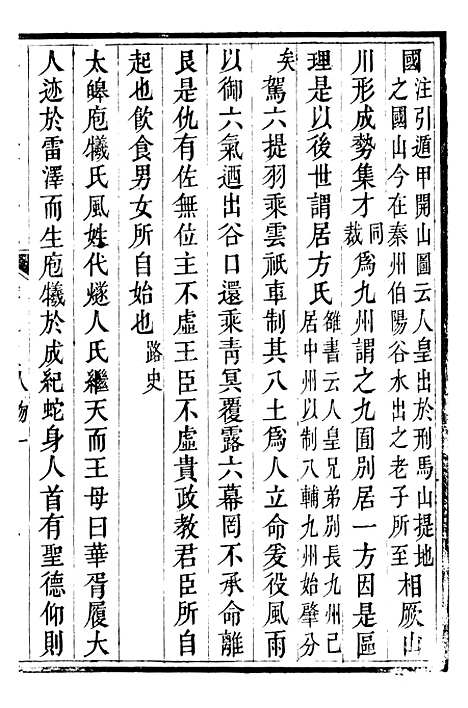 國注引遁甲開山圖云人皇出於刑馬山提地
之國山今在秦州伯陽谷水出之老子所至相厥山
川形成勢集才同裁為九州謂之九囿別居一方因是區
理是以後世謂居方氏雒書云人皇兄弟別長九州己居中州以制八輔九州始肇分
矣駕六提羽乘雲祇車制其八土為人立命爰役風雨
以御六氣迺出谷口還乘青冥覆露六幕罔不承命離
艮是仇有佐無位主不虛王臣不虛貴政教君臣所自
起也飲食男女所自始也路史
太皞庖犧氏風姓代燧人氏繼天而王母曰華胥履大
人迹於雷澤而生庖犧於成紀蛇身人首有聖德仰則
人物一